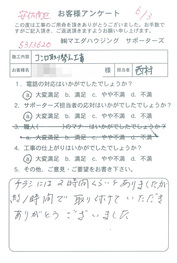 お客様アンケート
6/3
この度は工事のご用命を頂きありがとうございました。お手数で
すがご記入頂き、ご返送頂きますようお願い申し上げます。
㈱マエダハウジング サポーターズ
5313620
施工内容 コンロ取り替え工事
お名前 様 担当者 西村
1. 電話の対応はいかがでしたでしょうか?
a. 大変満足 b. 満足 c. やや不満 d. 不満
2. サポーターズ担当者の対応はいかがでしたでしょうか?
a. 大変満足 b. 満足 c. やや不満 d. 不満
3. 職人( )のマナーはいかがでしたでしょうか?
a. 大変満足 b. 満足 c. やや不満 d. 不満
4. 工事の仕上がりはいかがでしたでしょうか?
a. 大変満足 b. 満足 c. やや不満 d. 不満
5. その他、ご意見・ご要望をお書き下さい。
チラシには2時間くらいとありましたが
約1時間で取り付けていただき
ありがとうございました